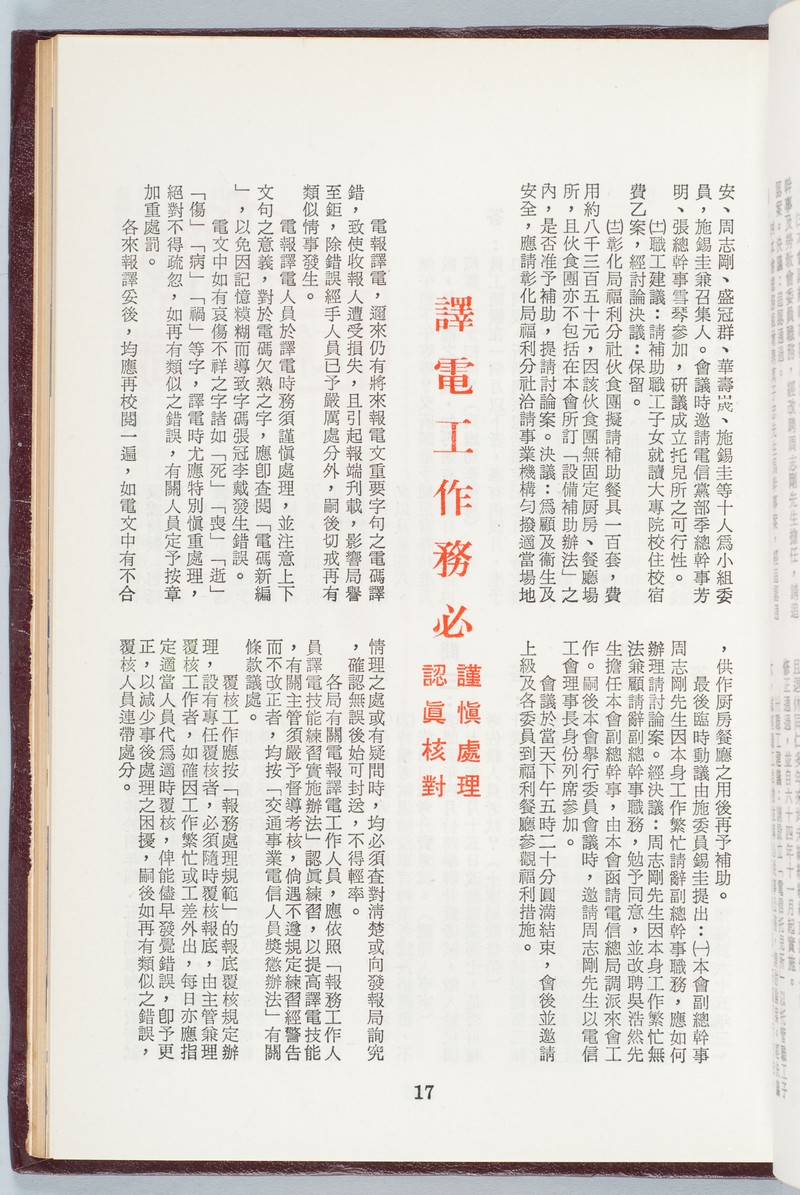 安、周志剛、盛冠群、華壽嵗、施錫圭等十人爲小組委
員，施錫圭兼召集人。會議時邀請電信黨部季總幹事芳
明、張總幹事雪琴參加，研議成立托兒所之可行性。
㈩職工建議：請補助職工子女就讀大專院校住校宿
費乙案，經討論決議：保留。
彰化局福利分社伙食團擬請補助餐具一百套，費
用約八千三百五十元，因該伙食團無固定厨房、餐廳場
所，且伙食團亦不包括在本會所訂「設備補助辦法」之
內，是否准予補助，提請討論案。決議：爲顧及衞生及
安全，應請彰化局福利分社洽請事業機構勻撥適當場地
，供作厨房餐廳之用後再予補助。
最後臨時動議由施委員錫圭提出：㈠本會副總幹事
周志剛先生因本身工作繁忙請辭副總幹事職務，應如何
辦理請討論案。經決議：周志剛先生因本身工作繁忙無
法兼顧請辭副總幹事職務，勉予同意，並改聘吳浩然先
生擔任本會副總幹事，由本會函請電信總局調派來會工
作。嗣後本會舉行委員會議時，邀請周志剛先生以電信
工會理事長身份列席參加。
會議於當天下午五時二十分圓滿結束，會後並邀請
上級及各委員到福利餐廳參觀福利措施。
譯電工作務必
謹愼處理
認眞核對
電報譯電，邇來仍有將來報電文重要字句之電碼譯
錯，致使收報人遭受損失，且引起報端刋載，影響局譽
至鉅，除錯誤經手人員已予嚴厲處分外，嗣後切戒再有
類似情事發生。
電報譯電人員於譯電時務須謹愼處理，並注意上下
文句之意義，對於電碼欠熟之字，應卽查閱「電碼新編
」，以免因記憶糢糊而導致字碼張冠李戴發生錯誤。
電文中如有哀傷不祥之字諸如「死」「喪」「逝」
「傷」「病」「禍」等字，譯電時尤應特別愼重處理，
絕對不得疏忽，如再有類似之錯誤，有關人員定予按章
加重處罰。
各來報譯妥後，均應再校閱一遍，如電文中有不合
情理之處或有疑問時，均必須查對淸楚或向發報局詢究
，確認無誤後始可封送，不得輕率。
各局有關電報譯電工作人員，應依照「報務工作人
員譯電技能練習實施辦法」認眞練習，以提高譯電技能
，有關主管須嚴予督導考核，倘遇不遵規定練習經警告
而不改正者，均按「交通事業電信人員獎懲辦法」有關
條款議處。
覆核工作應按「報務處理規範」的報底覆核規定辦
理，設有專任覆核者，必須隨時覆核報底，由主管兼理
覆核工作者，如確因工作繁忙或工差外出，每日亦應指
定適當人員代爲適時覆核，俾能儘早發覺錯誤，卽予更
正，以減少事後處理之困擾，嗣後如再有類似之錯誤，
覆核人員連帶處分。
17